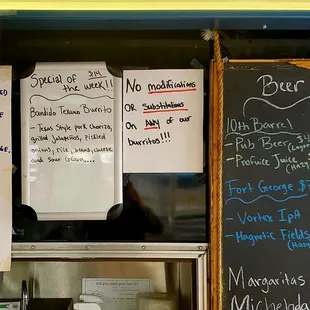 Special of $14
the week!!
Bandido Tejano Burrito
- Texas Style pork chorizo,
grilled jalapeños, pickled
onions, rice, beans, cheese
and sour cream....
No modifications
OR Substitutions
On ANY of our
burritos!!!
Beer
10th Barrel
- Pub Beer (Lager)
- Profuice Juice
(Hazy
Fort George $7
- Vortex IPA
- Magnetic Fields
(Hazy
Margaritas
Michelada